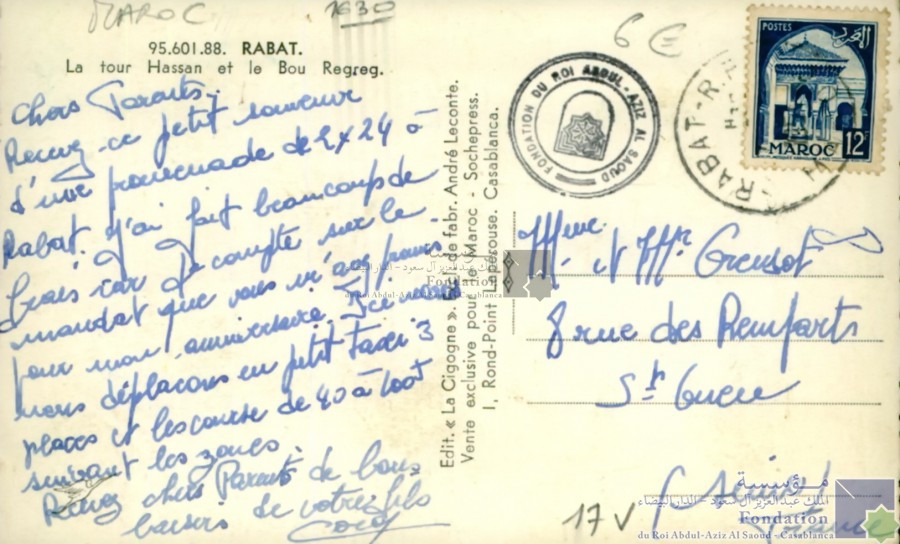 MAROC
1630
95.601.88. RABAT.
La tour Hassan et le Bou Regreg.
Chers Parents.
Recevez ce petit souvenir
d'une promenade de 2 x 24 à
Rabat j'ai fait beaucoup de
frais car je compte sur le
mandat que vous m'avez
pour mon anniversaire.
nous déplaçons en petit taxi 3
places et les course de 40 à 100f
suivant les zones.
Recevez chers Parents de bons
baisers de votre fils
Edit. « La Cigogne ». de fabr. André Leconte.
Vente exclusive pour le Maroc - Sochepress.
1, Rond-Point Lapérouse. Casablanca.
6 €
FONDATION DU ROI ABDUL-AZIZ AL SAOUD
RABAT-R.P.
POSTES المغرب
MAROC 12F
Mme et Mr
8 rue des Remparts
17 V
مؤسسة
الملك عبد العزيز آل سعود - الدار البيضاء
Fondation
du Roi Abdul-Aziz Al Saoud - Casablanca
الملك عبد العزيز آل سعود - الدار البيضاء
Fondation
du Roi Abdul-Aziz Al Saoud - Casablanca